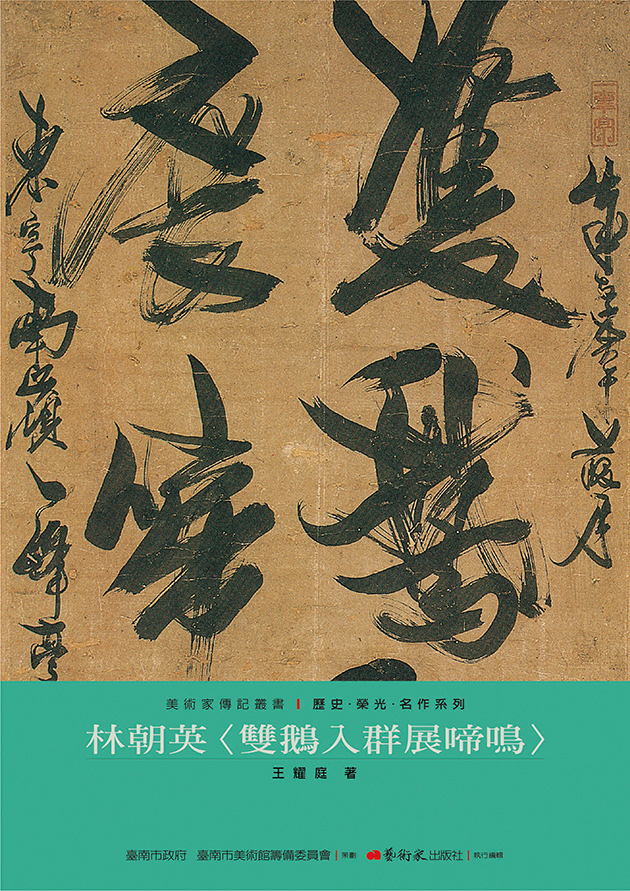 雙鵝
展啼
東寧南嶺一峰亭
美術家傳記叢書|歷史·榮光·名作系列
林朝英〈雙鵝入群展啼鳴〉
王耀庭 著
臺南市政府 臺南市美術館籌備委員會|策劃 藝術家出版社|執行編輯